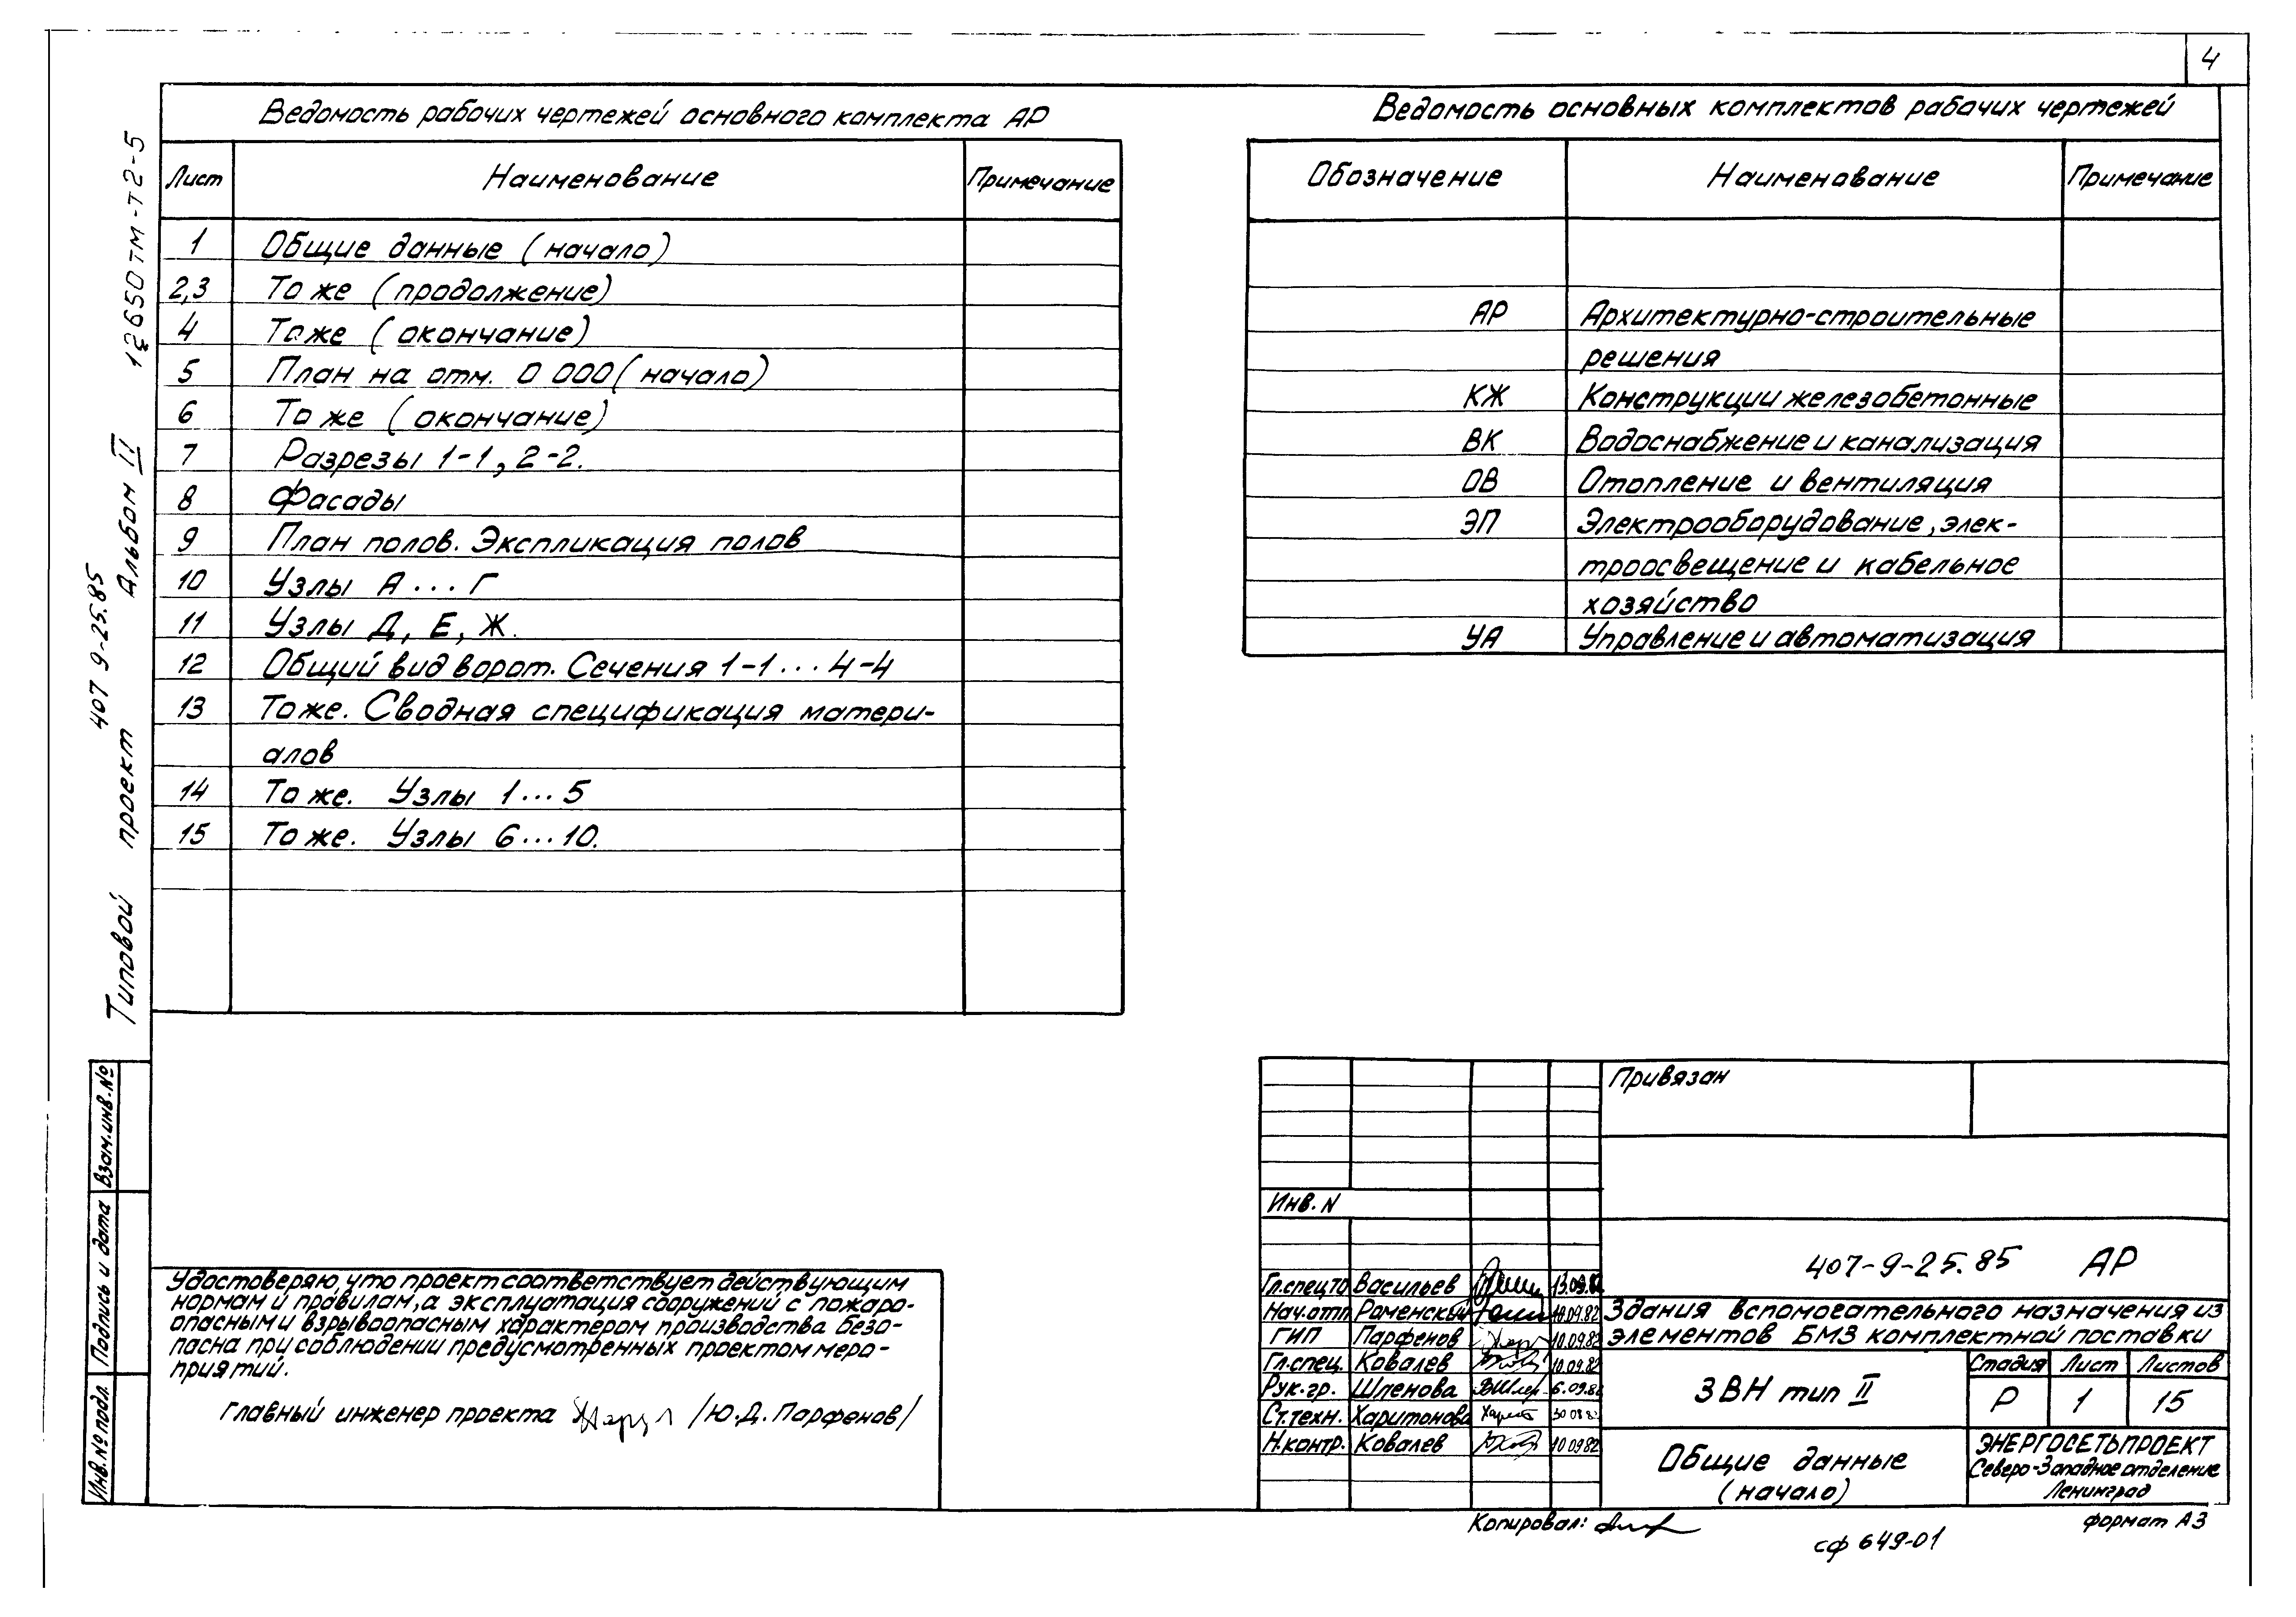 4
Ведомость рабочих чертежей основного комплекта АР
Лист Наименование Примечание
1 Общие данные (начало)
2,3 То же (продолжение)
4 То же (окончание)
5 План на отм. 0 000 (начало)
6 То же (окончание)
7 Разрезы 1-1, 2-2.
8 Фасады
9 План полов. Экспликация полов
10 Узлы А ... Г
11 Узлы Д, Е, Ж.
12 Общий вид ворот. Сечения 1-1 ... 4-4
13 То же. Сводная спецификация матери-
алов
14 То же. Узлы 1 ... 5
15 То же. Узлы 6 ... 10.
Ведомость основных комплектов рабочих чертежей
Обозначение Наименование Примечание
АР Архитектурно-строительные
решения
КЖ Конструкции железобетонные
ВК Водоснабжение и канализация
ОВ Отопление и вентиляция
ЭП Электрооборудование, элек-
троосвещение и кабельное
хозяйство
УА Управление и автоматизация
Типовой проект 407 9-25.85 Альбом II 12650тм-т2-5
Взам.инв.№
Подпись и дата
Инв.№ подл.
Удостоверяю, что проект соответствует действующим
нормам и правилам, а эксплуатация сооружений с пожаро-
опасным и взрывоопасным характером производства безо-
пасна при соблюдении предусмотренных проектом меро-
приятий.
Главный инженер проекта /Ю.Д. Парфенов/
Привязан
Инв. N
407-9-25.85 АР
Гл.спец.то Васильев 13.09.82
Нач.отп Роменский 10.09.82
ГИП Парфенов 10.09.82
Гл.спец. Ковалев 10.09.82
Рук.гр. Шленова 6.09.82
Ст.техн. Харитонова
Н.контр. Ковалев 10.09.82
Здания вспомогательного назначения из
элементов БМЗ комплектной поставки
ЗВН тип II
Стадия Лист Листов
Р 1 15
Общие данные
(начало)
ЭНЕРГОСЕТЬПРОЕКТ
Северо-Западное отделение
Ленинград
Копировал:
формат А3
сф 649-01